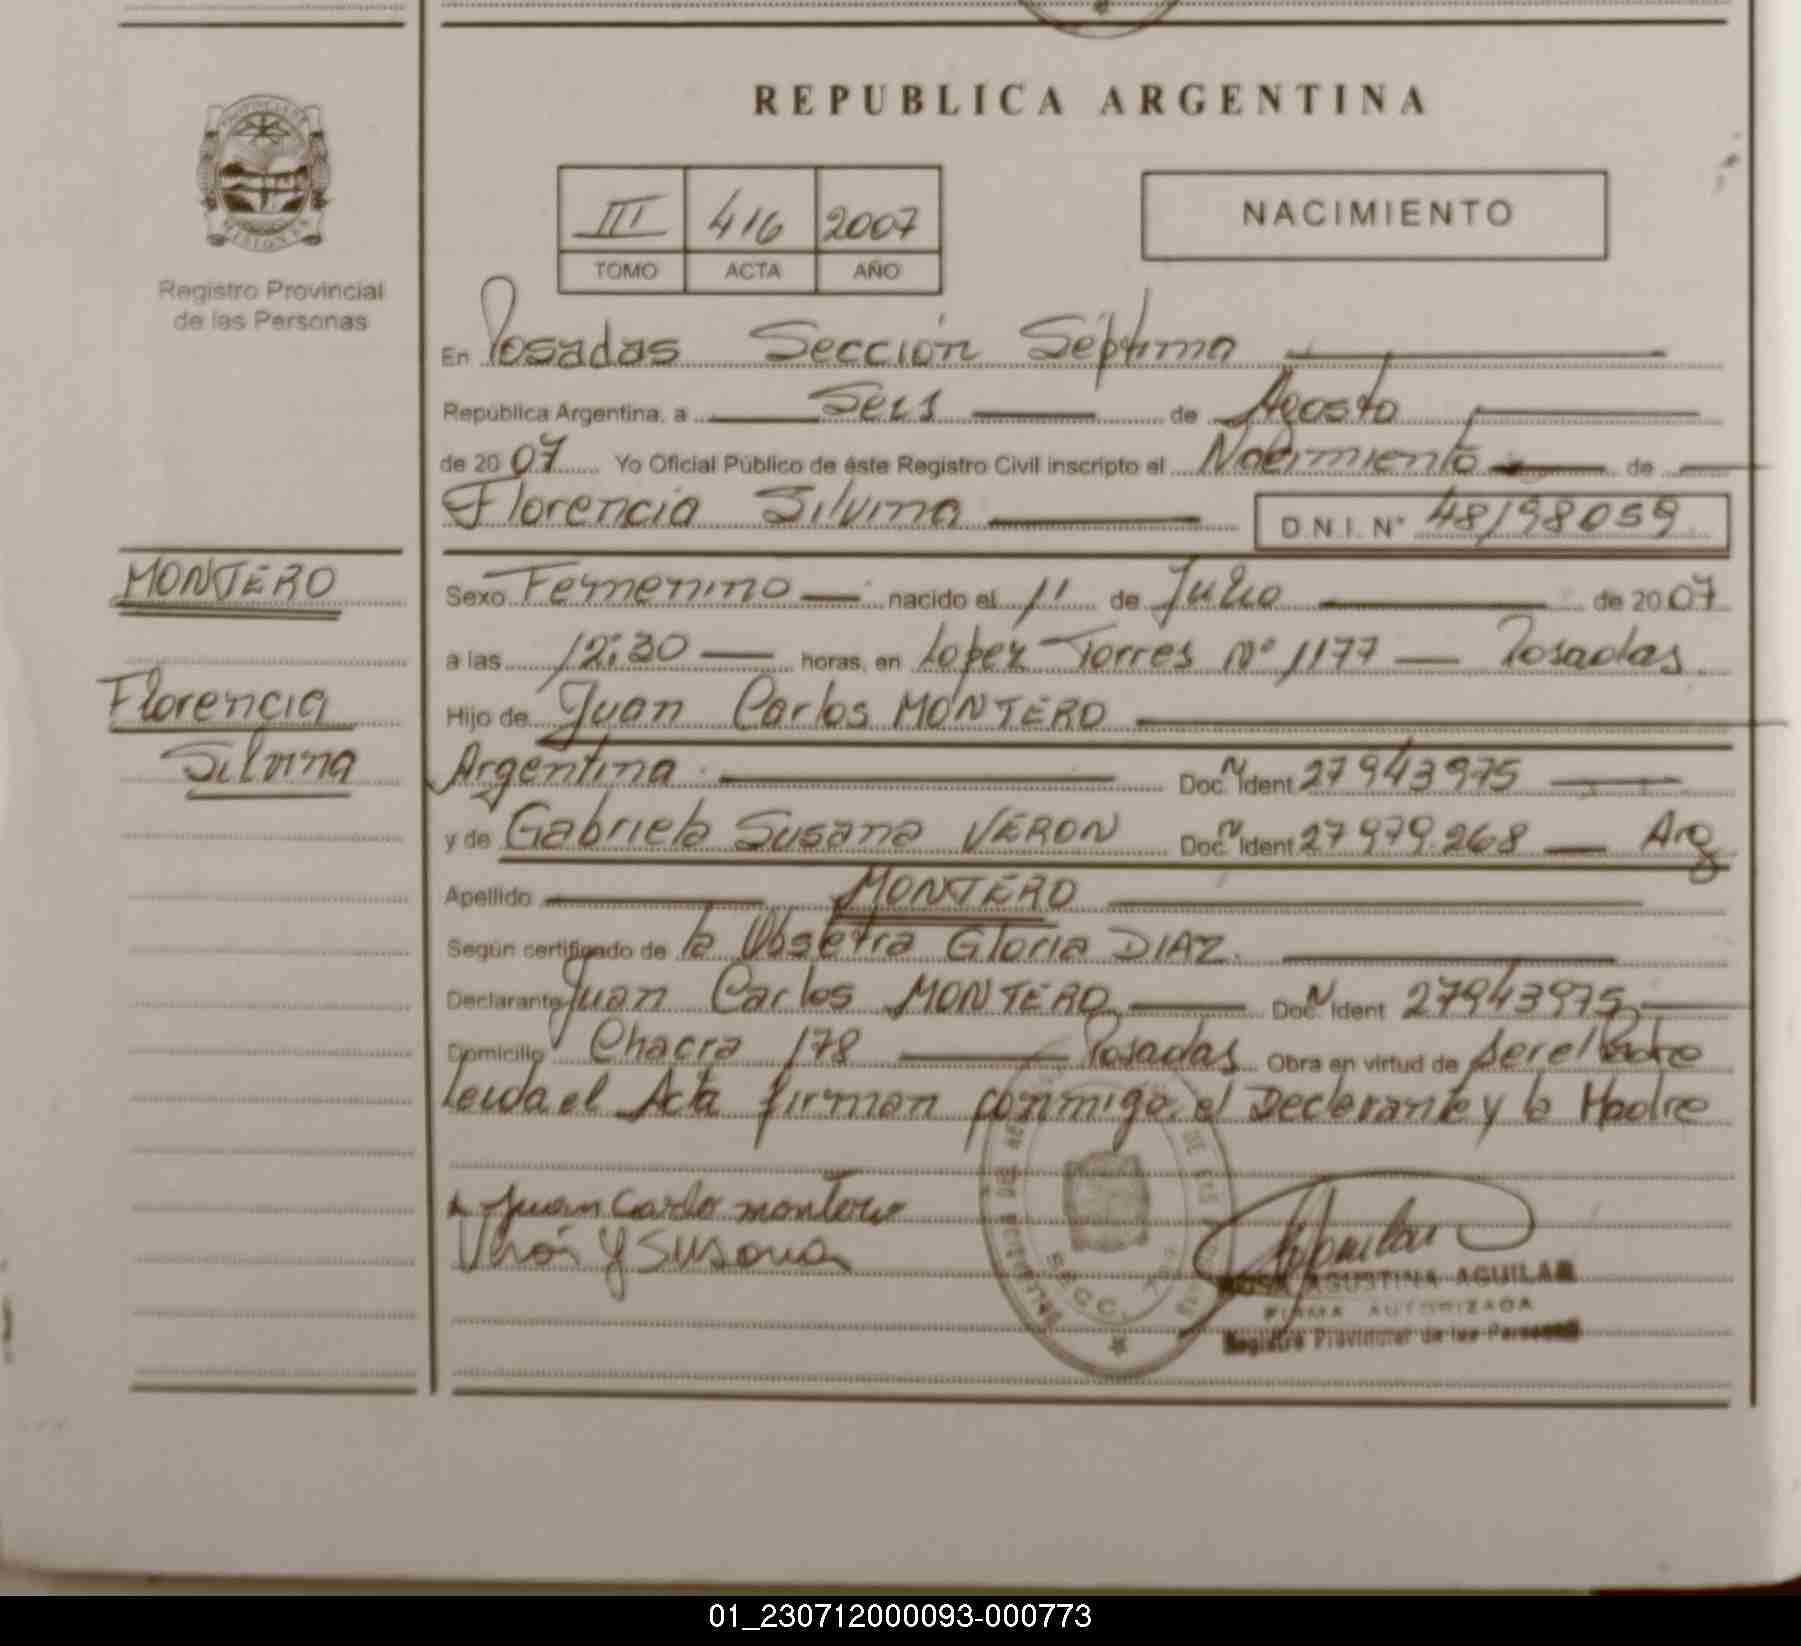 REPUBLICA ARGENTINA
III 416 2007
TOMO ACTA AÑO
NACIMIENTO
PROVINCIA DE MISIONES
Registro Provincial
de las Personas
En Posadas Sección Séptima
República Argentina, a Seis de Agosto
de 2007 Yo Oficial Público de éste Registro Civil inscripto el Nacimiento de
Florencia Silvina D.N.I. N° 48198059
MONTERO
Florencia
Silvina
Sexo Femenino nacido el 11 de Julio de 2007
a las 12:30 horas, en Lopez Torres N° 1177 Posadas
Hijo de Juan Carlos MONTERO
Argentina Doc. N Ident 27943975
y de Gabriela Susana VERON Doc. N Ident 27979.268 Arg
Apellido MONTERO
Según certificado de la Obsetra Gloria DIAZ.
Declarante Juan Carlos MONTERO Doc. N Ident 27943975
Domicilio Chacra 178 Posadas Obra en virtud de ser el Padre
leida el Acta firman conmigo el Declarante y la Madre
Juan Carlo montero
Verón y Susana
SECC.
AGUSTINA AGUILAR
FIRMA AUTORIZADA
Registro Provincial de las Personas
01_230712000093-000773